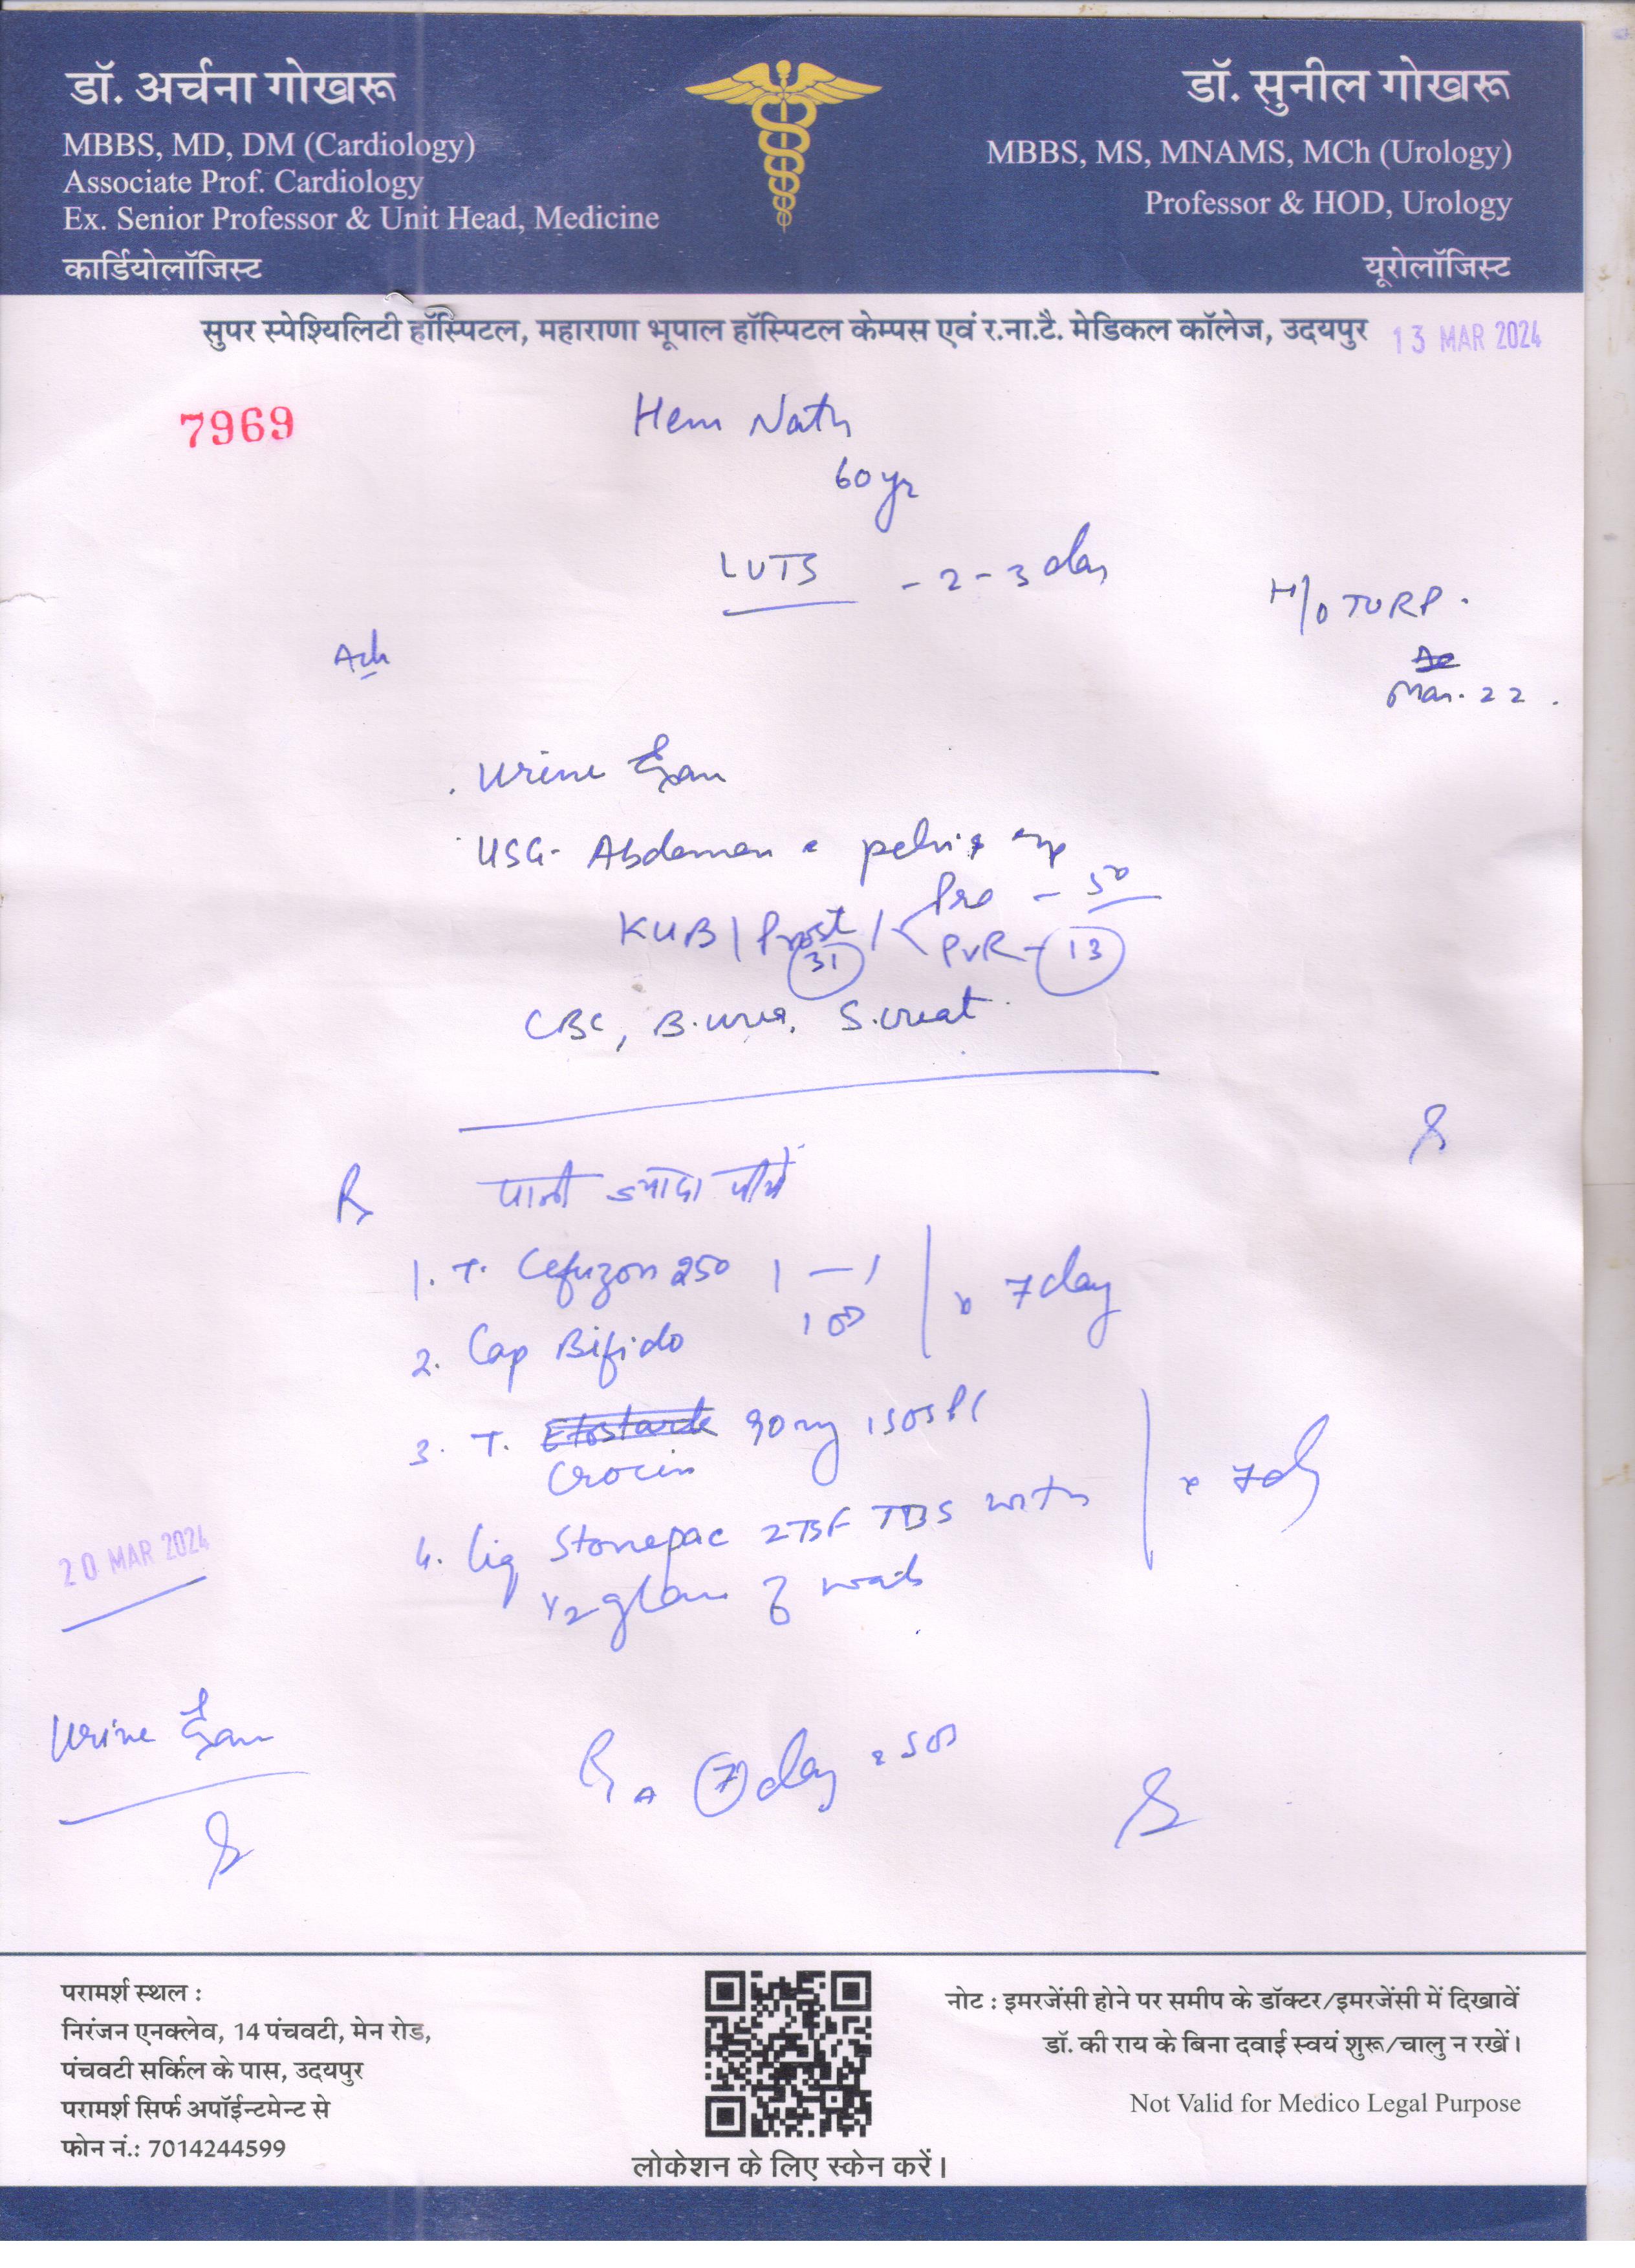 डॉ. अर्चना गोखरू
MBBS, MD, DM (Cardiology)
Associate Prof. Cardiology
Ex. Senior Professor & Unit Head, Medicine
कार्डियोलॉजिस्ट
डॉ. सुनील गोखरू
MBBS, MS, MNAMS, MCh (Urology)
Professor & HOD, Urology
यूरोलॉजिस्ट
सुपर स्पेश्यिलिटी हॉस्पिटल, महाराणा भूपाल हॉस्पिटल केम्पस एवं र.ना.टै. मेडिकल कॉलेज, उदयपुर
13 MAR 2024
7969
Hem Nath
60 yr
LUTS - 2-3 day
H/o TURP.
Mar. 22.
Urine Exam
USG- Abdomen pelvis
KUB / Prost / Pre - 50
31 PVR - 13
CBC, B. urea, S. creat
Rx पानी ज्यादा पीये
1. T. Cefuzon 250 1 — 1
x 7 day
2. Cap Bifido 1 OD
3. T. 90 mg 1 SOS
Crocin
4. Liq Stonepac 2TSF TDS with
1/2 glass of water
x 7 d
20 MAR 2024
Urine Exam
7 day SOS
परामर्श स्थल :
निरंजन एनक्लेव, 14 पंचवटी, मेन रोड,
पंचवटी सर्किल के पास, उदयपुर
परामर्श सिर्फ अपॉईन्टमेन्ट से
फोन नं.: 7014244599
लोकेशन के लिए स्केन करें।
नोट : इमरजेंसी होने पर समीप के डॉक्टर/इमरजेंसी में दिखावें
डॉ. की राय के बिना दवाई स्वयं शुरू/चालु न रखें।
Not Valid for Medico Legal Purpose